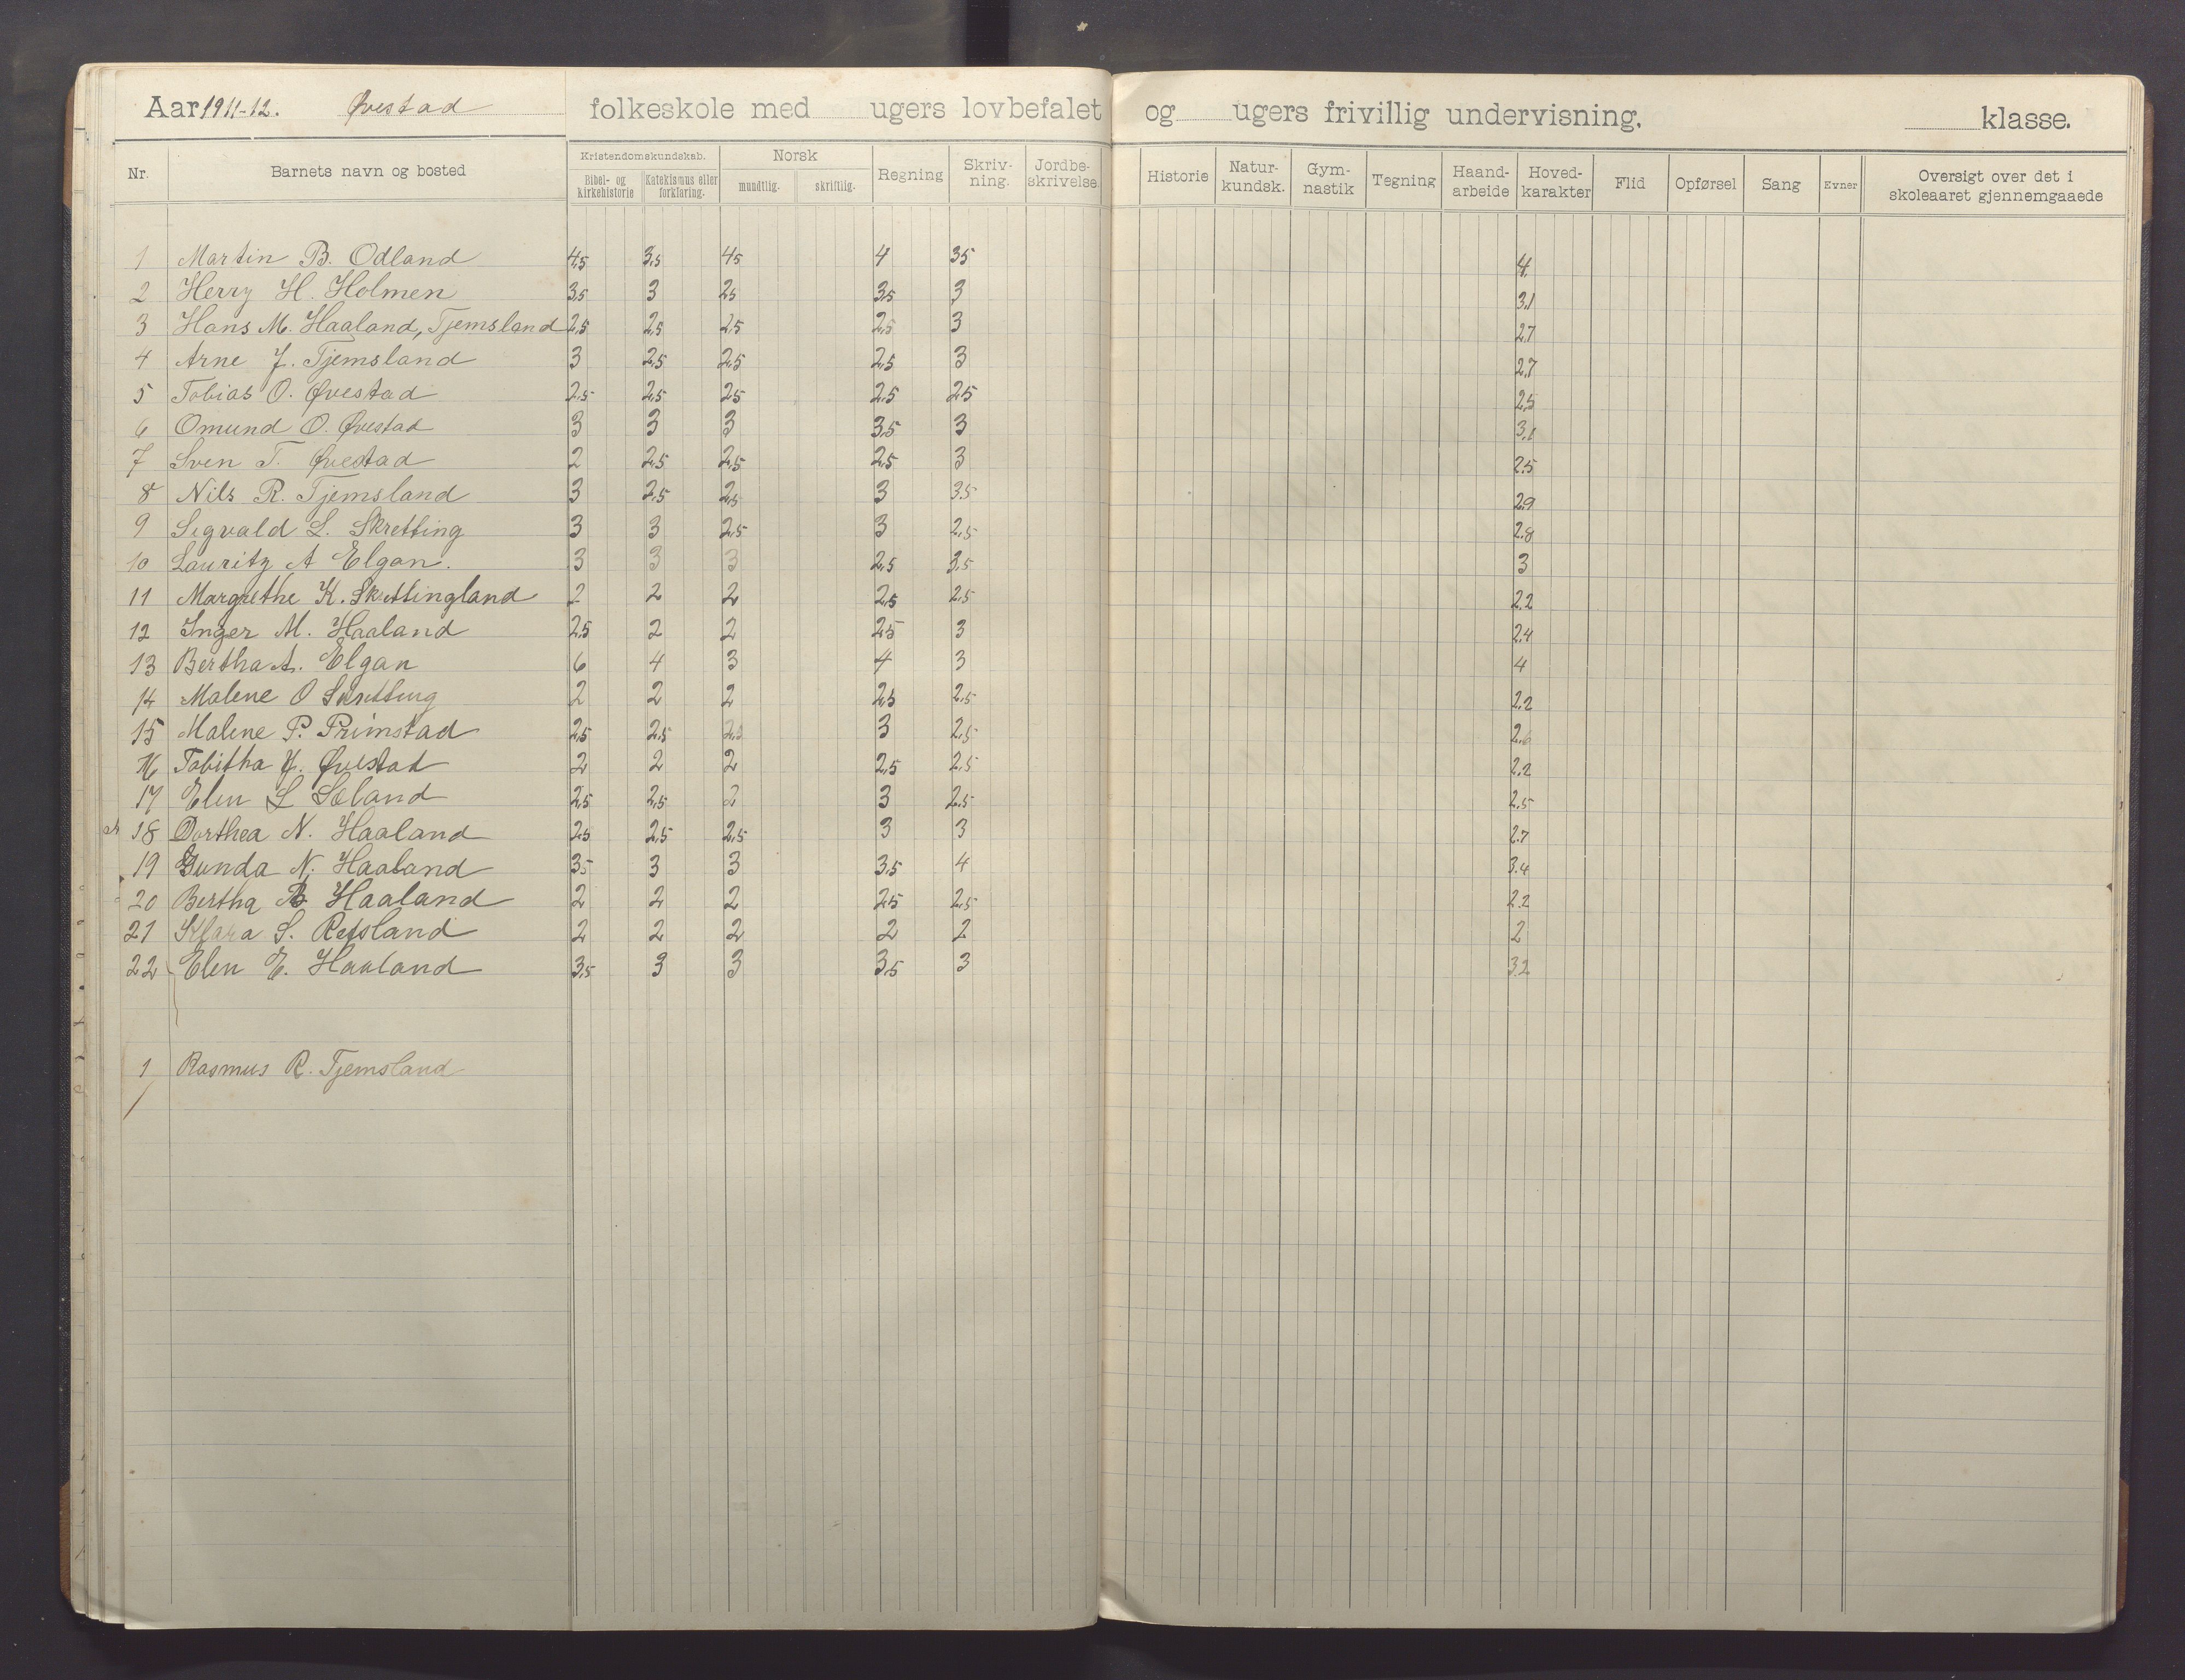 Aar 1911-12. Øvestad folkeskole med ugers lovbefalet og ugers frivillig undervisning. klasse.
Nr. Barnets navn og bosted Kristendomskundskab. Bibel- og kirkehistorie Katekismus eller forklaring. Norsk mundtlig. skriftlig. Regning Skrivning. Jordbeskrivelse. Historie Naturkundsk. Gymnastik Tegning Haandarbeide Hovedkarakter Flid Opførsel Sang Evner Oversigt over det i skoleaaret gjennemgaaede
1 Martin B. Odland 4,5 3,5 45 4 35 4.
2 Herry H. Holmen 3,5 3 25 35 3 3,1
3 Hans M. Haaland, Tjemsland 2,5 25 2,5 25 3 2,7
4 Arne J. Tjemsland 3 2,5 2,5 2,5 3 2,7
5 Tobias O. Øvestad 2,5 2,5 25 2,5 25 2,5
6 Omund O. Øvestad 3 3 3 3,5 3 3,1
7 Sven T. Øvestad 2 2,5 2,5 2,5 3 2,5
8 Nils R. Tjemsland 3 2,5 2,5 3 3,5 2,9
9 Sigvald L. Skretting 3 3 2,5 3 2,5 2,8
10 Lauritz A Elgan. 3 3 3 2,5 3,5 3
11 Margrethe K. Skrettingland 2 2 2 2,5 2,5 2.2
12 Inger M. Haaland 2,5 2 2 25 3 2.4
13 Bertha A. Elgan 6 4 3 4 3 4
14 Malene O Skretting 2 2 2 2,5 2,5 2.2
15 Malene P. Primstad 2,5 2,5 2,5 3 2,5 2.6
16 Tabitha J. Øvestad 2 2 2 2,5 2,5 2.2
17 Elen L Sæland 2,5 2,5 2 3 2,5 2.5
18 Dorthea N. Haaland 25 2,5 2,5 3 3 2.7
19 Gunda N. Haaland 35 3 3 3,5 4 3.4
20 Bertha B Haaland 2 2 2 25 2,5 2.2
21 Klara S. Refsland 2 2 2 2 2 2
22 Elen E. Haaland 3,5 3 3 3,5 3 3.2
1 Rasmus R. Tjemsland